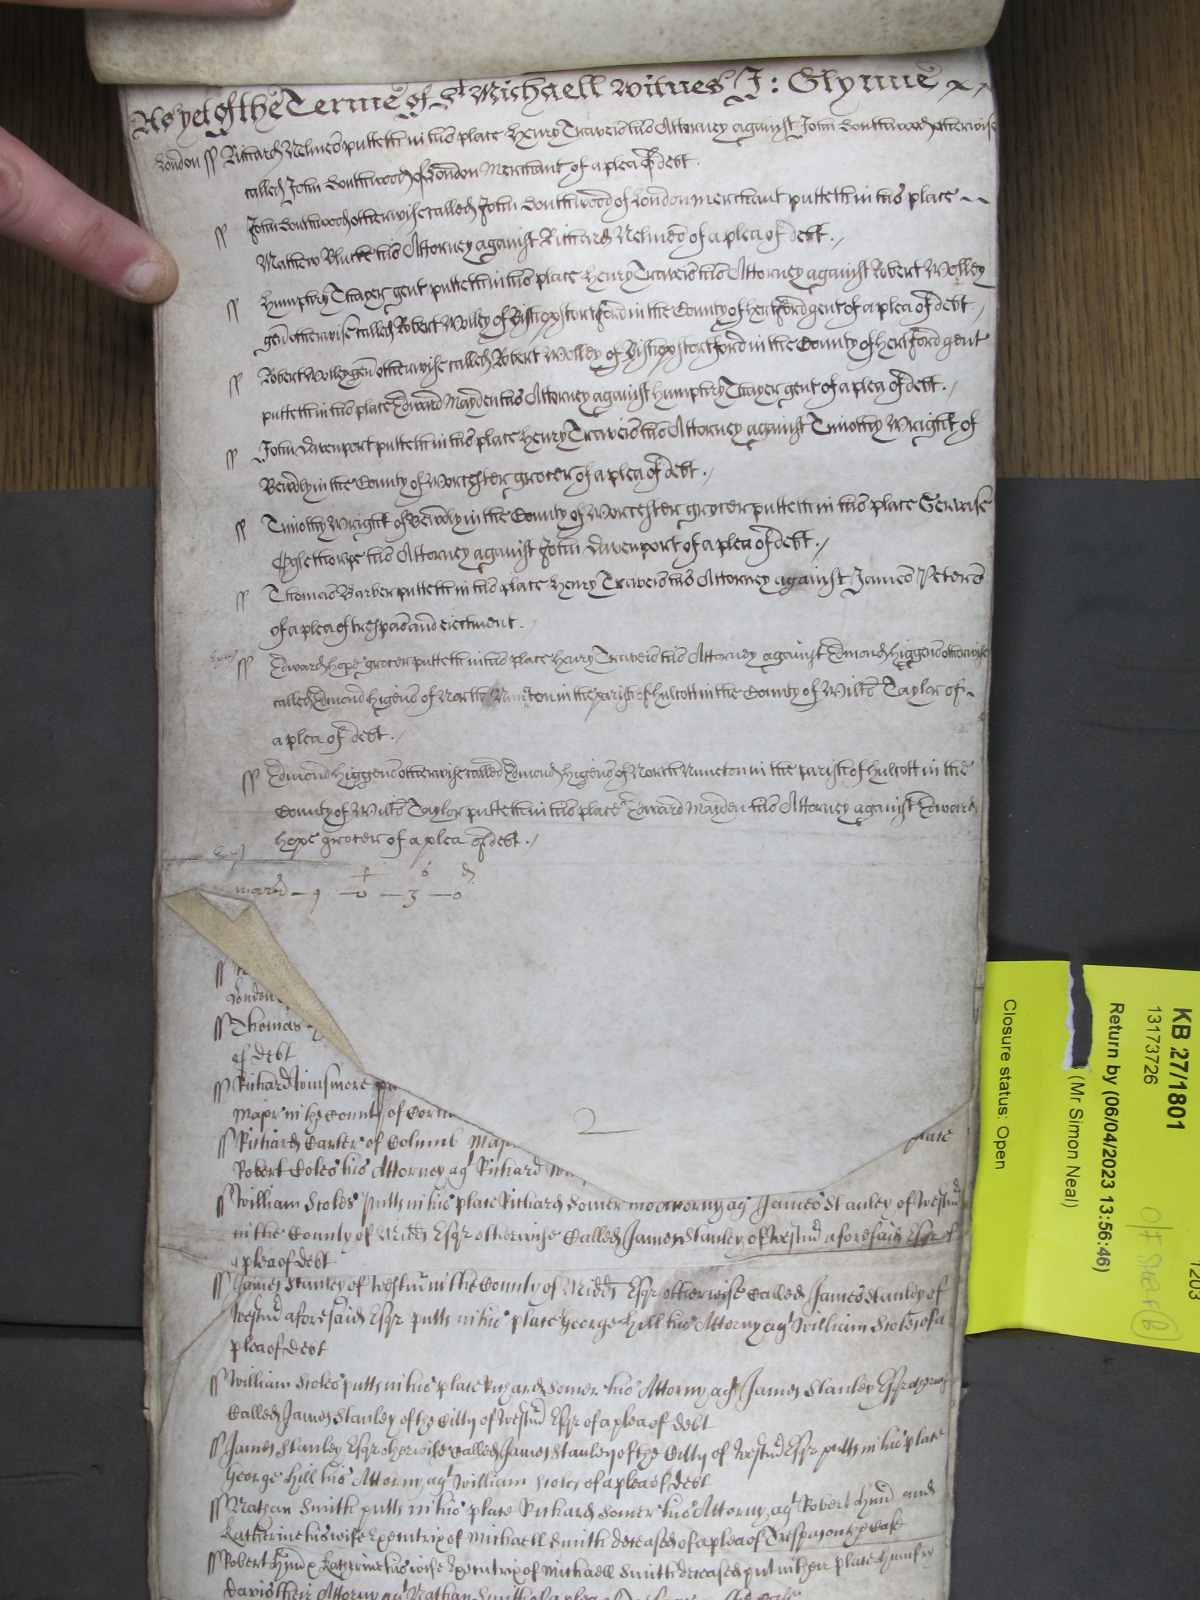 As yet of the Terme of St Michaell witnes J: Glynne
London ss Richard Nelmes putteth in his place Henry Travers his Attorney against John Southwood otherwise
called John Southwood of London Merchant of a plea of debt.
ss John Southwood otherwise called John Southwood of London merchant putteth in his place
Mathew Blucke his Attorney against Richard Nelmes of a plea of debt.
ss Humphry Thayer gent putteth in his place Henry Travers his Attorney against Robert Wolley
gen otherwise called Robert Wolley of Bishopstortford in the County of hertford gent of a plea of debt.
ss Robert Wolley gen otherwise called Robert Wolley of Bishopstortford in the County of hertford gent
putteth in his place Edward Mayden his Attorney against humphry Thayer gent of a plea of debt.
ss John Davenport putteth in his place Henry Travers his Attorney against Timothy Wright of
Bewdly in the County of Worcester grocer of a plea of debt.
ss Timothy Wright of Bewdly in the County of Worcester grocer putteth in his place Gervase
Oglethorpe his Attorney against John Davenport of a plea of debt.
ss Thomas Barber putteth in his place Henry Travers his Attorney against James Peters
of a plea of trespas and eiectment.
ss Edward Hope grocer putteth in his place Henry Travers his Attorney against Edmond Higgens otherwise
called Edmond Higens of North Newnton in the parish of hulcott in the County of Wiltes Taylor of
a plea of debt.
ss Edmond Higgens otherwise called Edmond Higens of North Newneton in the parish of hulcott in the
County of Wiltes Taylor putteth in his place Edward Mayden his Attorney against Edward
hope grocer of a plea of debt.
9 — 0 — 3 — 0
London
ss Thomas
of debt
ss Richard Winsmore
Major in the County of Corn
ss Richard Carter of Columb Major plate
Robert Coles his Attorney agt Richard
ss William Stoles putts in his plate Richard Somer his Attorny agt James Stanley of Westmr
in the County of Midds Esqr otherwise Called James Stanley of Westmr aforesaid Esqr of
a plea of debt
ss James Stanley of Westmr in the County of Midds Esqr otherwise Called James Stanley of
Westmr aforesaid Esqr putts in his plate George Hill his Attorny agt William Stoles of a
plea of debt
ss William Stoles putts in his plate Richard Somer his Attorny agt James Stanley Esqr otherwise
Called James Stanley of the Citty of Westmr Esqr of a plea of debt
ss James Stanley Esqr otherwise Called James Stanley of the Citty of Westmr Esqr putts in his plate
George Hill his Attorny agt William Stoles of a plea of debt
ss Nathan Smith putts in his plate Richard Somer his Attorny agt Robert Hynd and
Katherine his wife Exentrix of Michaell Smith deceased of a plea of Trespas on the Case
ss Robert Hynd & Katherine his wife Exentrix of Michaell Smith deceased put in their plate Humfry
Davis their Attorny agt Nathan Smith of a plea
2
KB 27/1801
13173726
Return by (06/04/2023 13:56:46)
(Mr Simon Neal)
Closure status: Open
1203